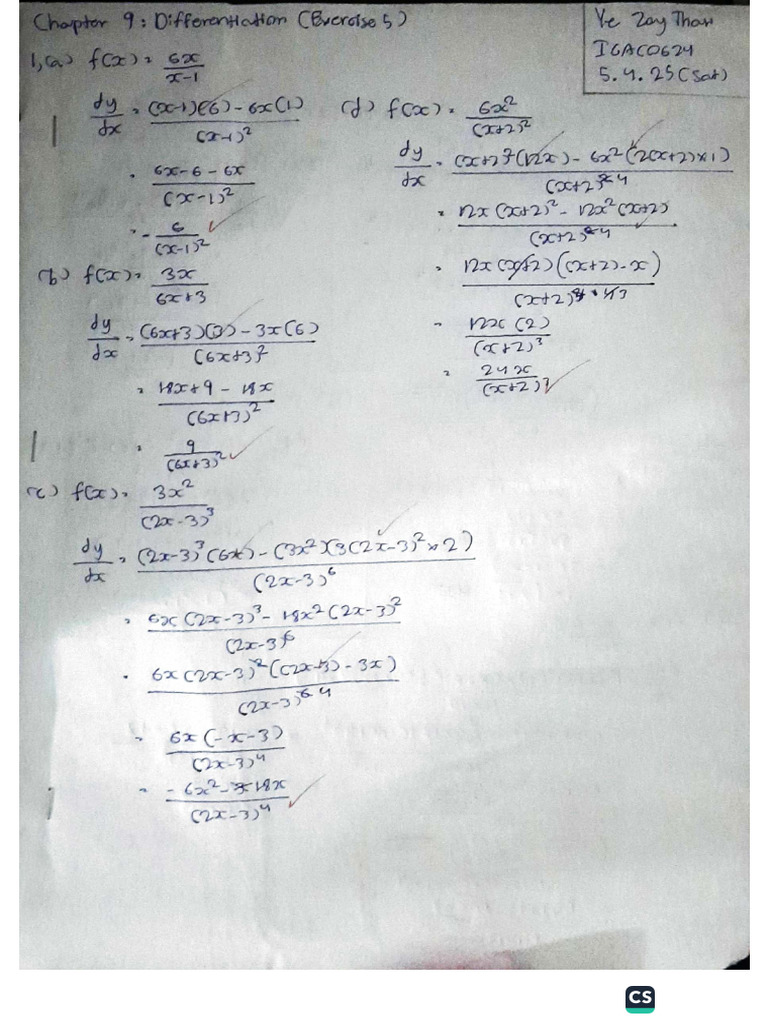 Chapter 9: Differentiation (Exercise 5)
Ye Zay Thaw
IGAC0624
5.4.25 (Sat)
1,(a) f(x) = 6x / x-1
dy/dx = (x-1)(6) - 6x(1) / (x-1)²
= 6x - 6 - 6x / (x-1)²
= - 6 / (x-1)²
(b) f(x) = 3x / 6x+3
dy/dx = (6x+3)(3) - 3x(6) / (6x+3)²
= 18x + 9 - 18x / (6x+3)²
= 9 / (6x+3)²
(c) f(x) = 3x² / (2x-3)³
dy/dx = (2x-3)³(6x) - (3x²)(3(2x-3)² × 2) / (2x-3)⁶
= 6x(2x-3)³ - 18x²(2x-3)² / (2x-3)⁶
= 6x(2x-3)²((2x-3) - 3x) / (2x-3)⁴
= 6x(-x-3) / (2x-3)⁴
= -6x² - 18x / (2x-3)⁴
(d) f(x) = 6x² / (x+2)²
dy/dx = (x+2)²(12x) - 6x²(2(x+2)×1) / (x+2)⁴
= 12x(x+2)² - 12x²(x+2) / (x+2)⁴
= 12x(x+2)((x+2)-x) / (x+2)³
= 12x(2) / (x+2)³
= 24x / (x+2)³
CS